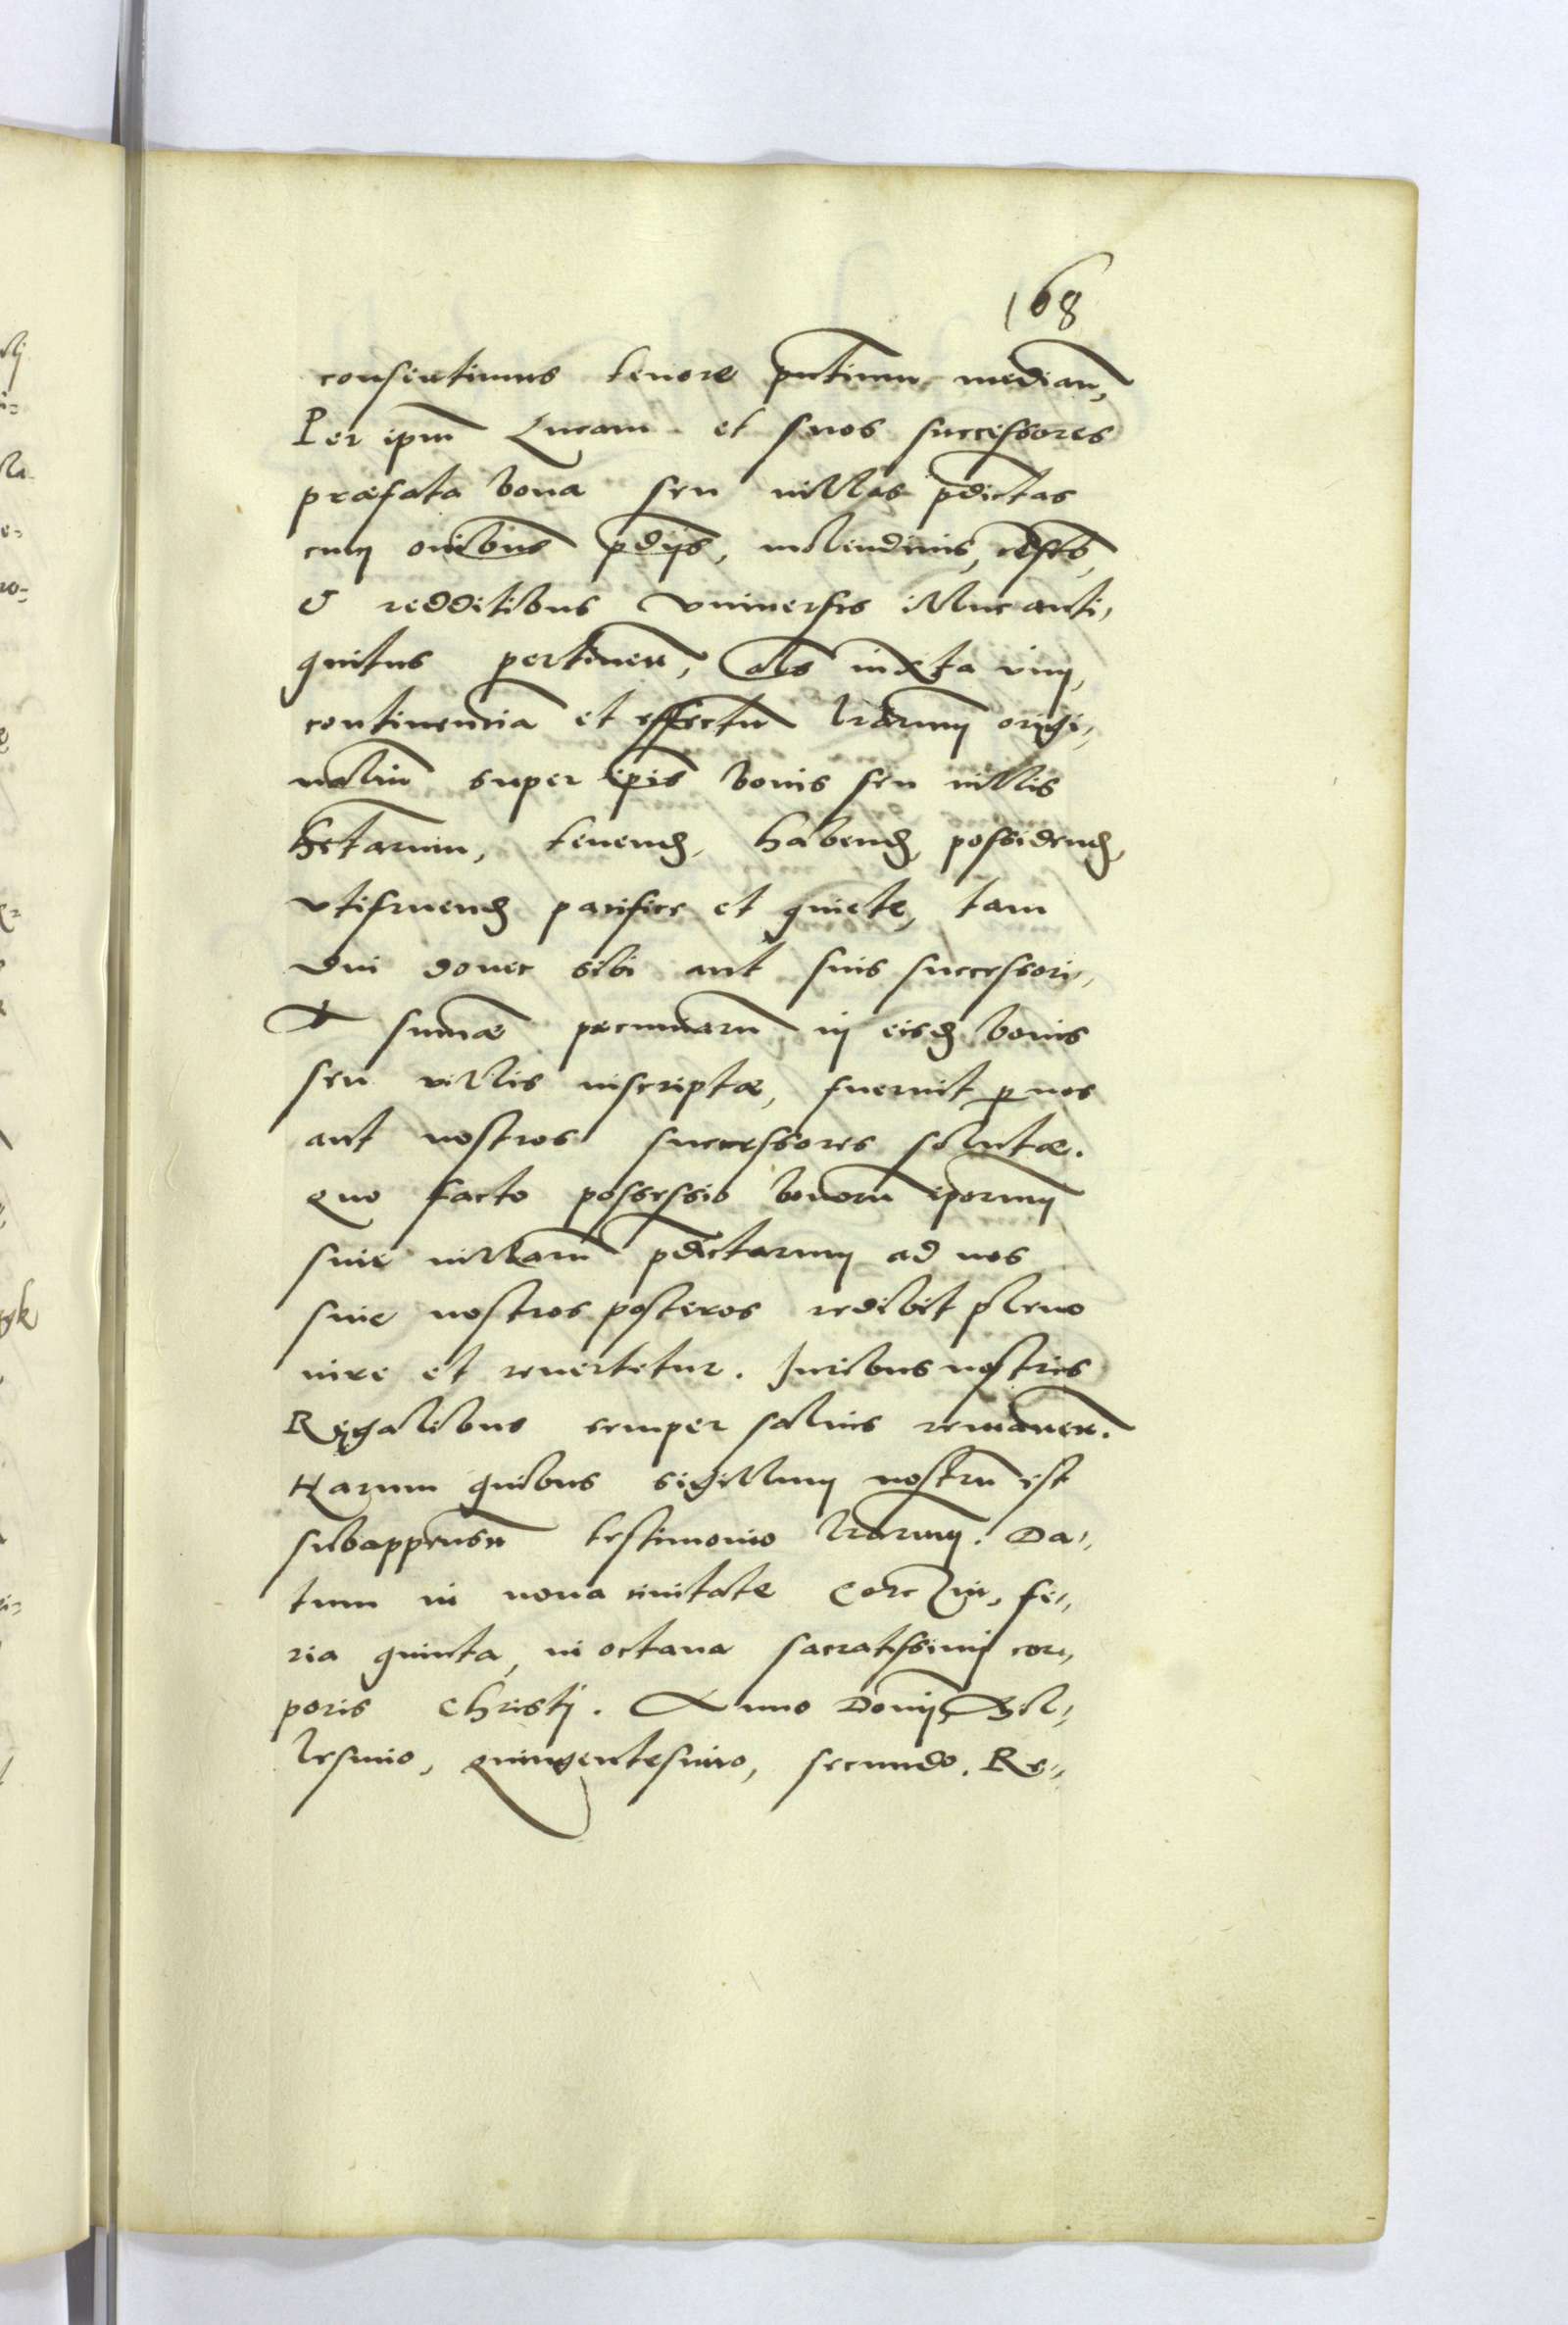 168
consentimus tenore pntium median,
Per ipm Lucam et suos successores
præfata bona seu villas pdictas
cum oibus pdijs, molendinis,
& redditibus vniuersis illuc anti,
quitus pertinen, als iuxta vim,
continencia et effectu lrarum origi,,
naliu super ipis bonis seu villis
tenend, habend, possidend,
vtifruend pacifice et quiete, tam
diu donec sibi aut suis successori,,
sumæ pecuniaru in eisd bonis
seu villis inscriptæ, fuerint p nos
aut nostros successores solutæ.
Quo facto possessio bonoru iporum
siue villaru pdictarum ad nos
siue nostros posteros redibit pleno
iure et reuertetur. Iuribus nostris
Regalibus semper saluis remanen.
Harum quibus sigillum nostru est
subappensu testimonio lrarum. Da,,
tum in noua ciuitate Corczin, fe,,
ria quinta, in octaua sacratissimi cor,,
poris Christj. Anno Domij Mil,,
lesimo, Quingentesimo, secundo. Re,,